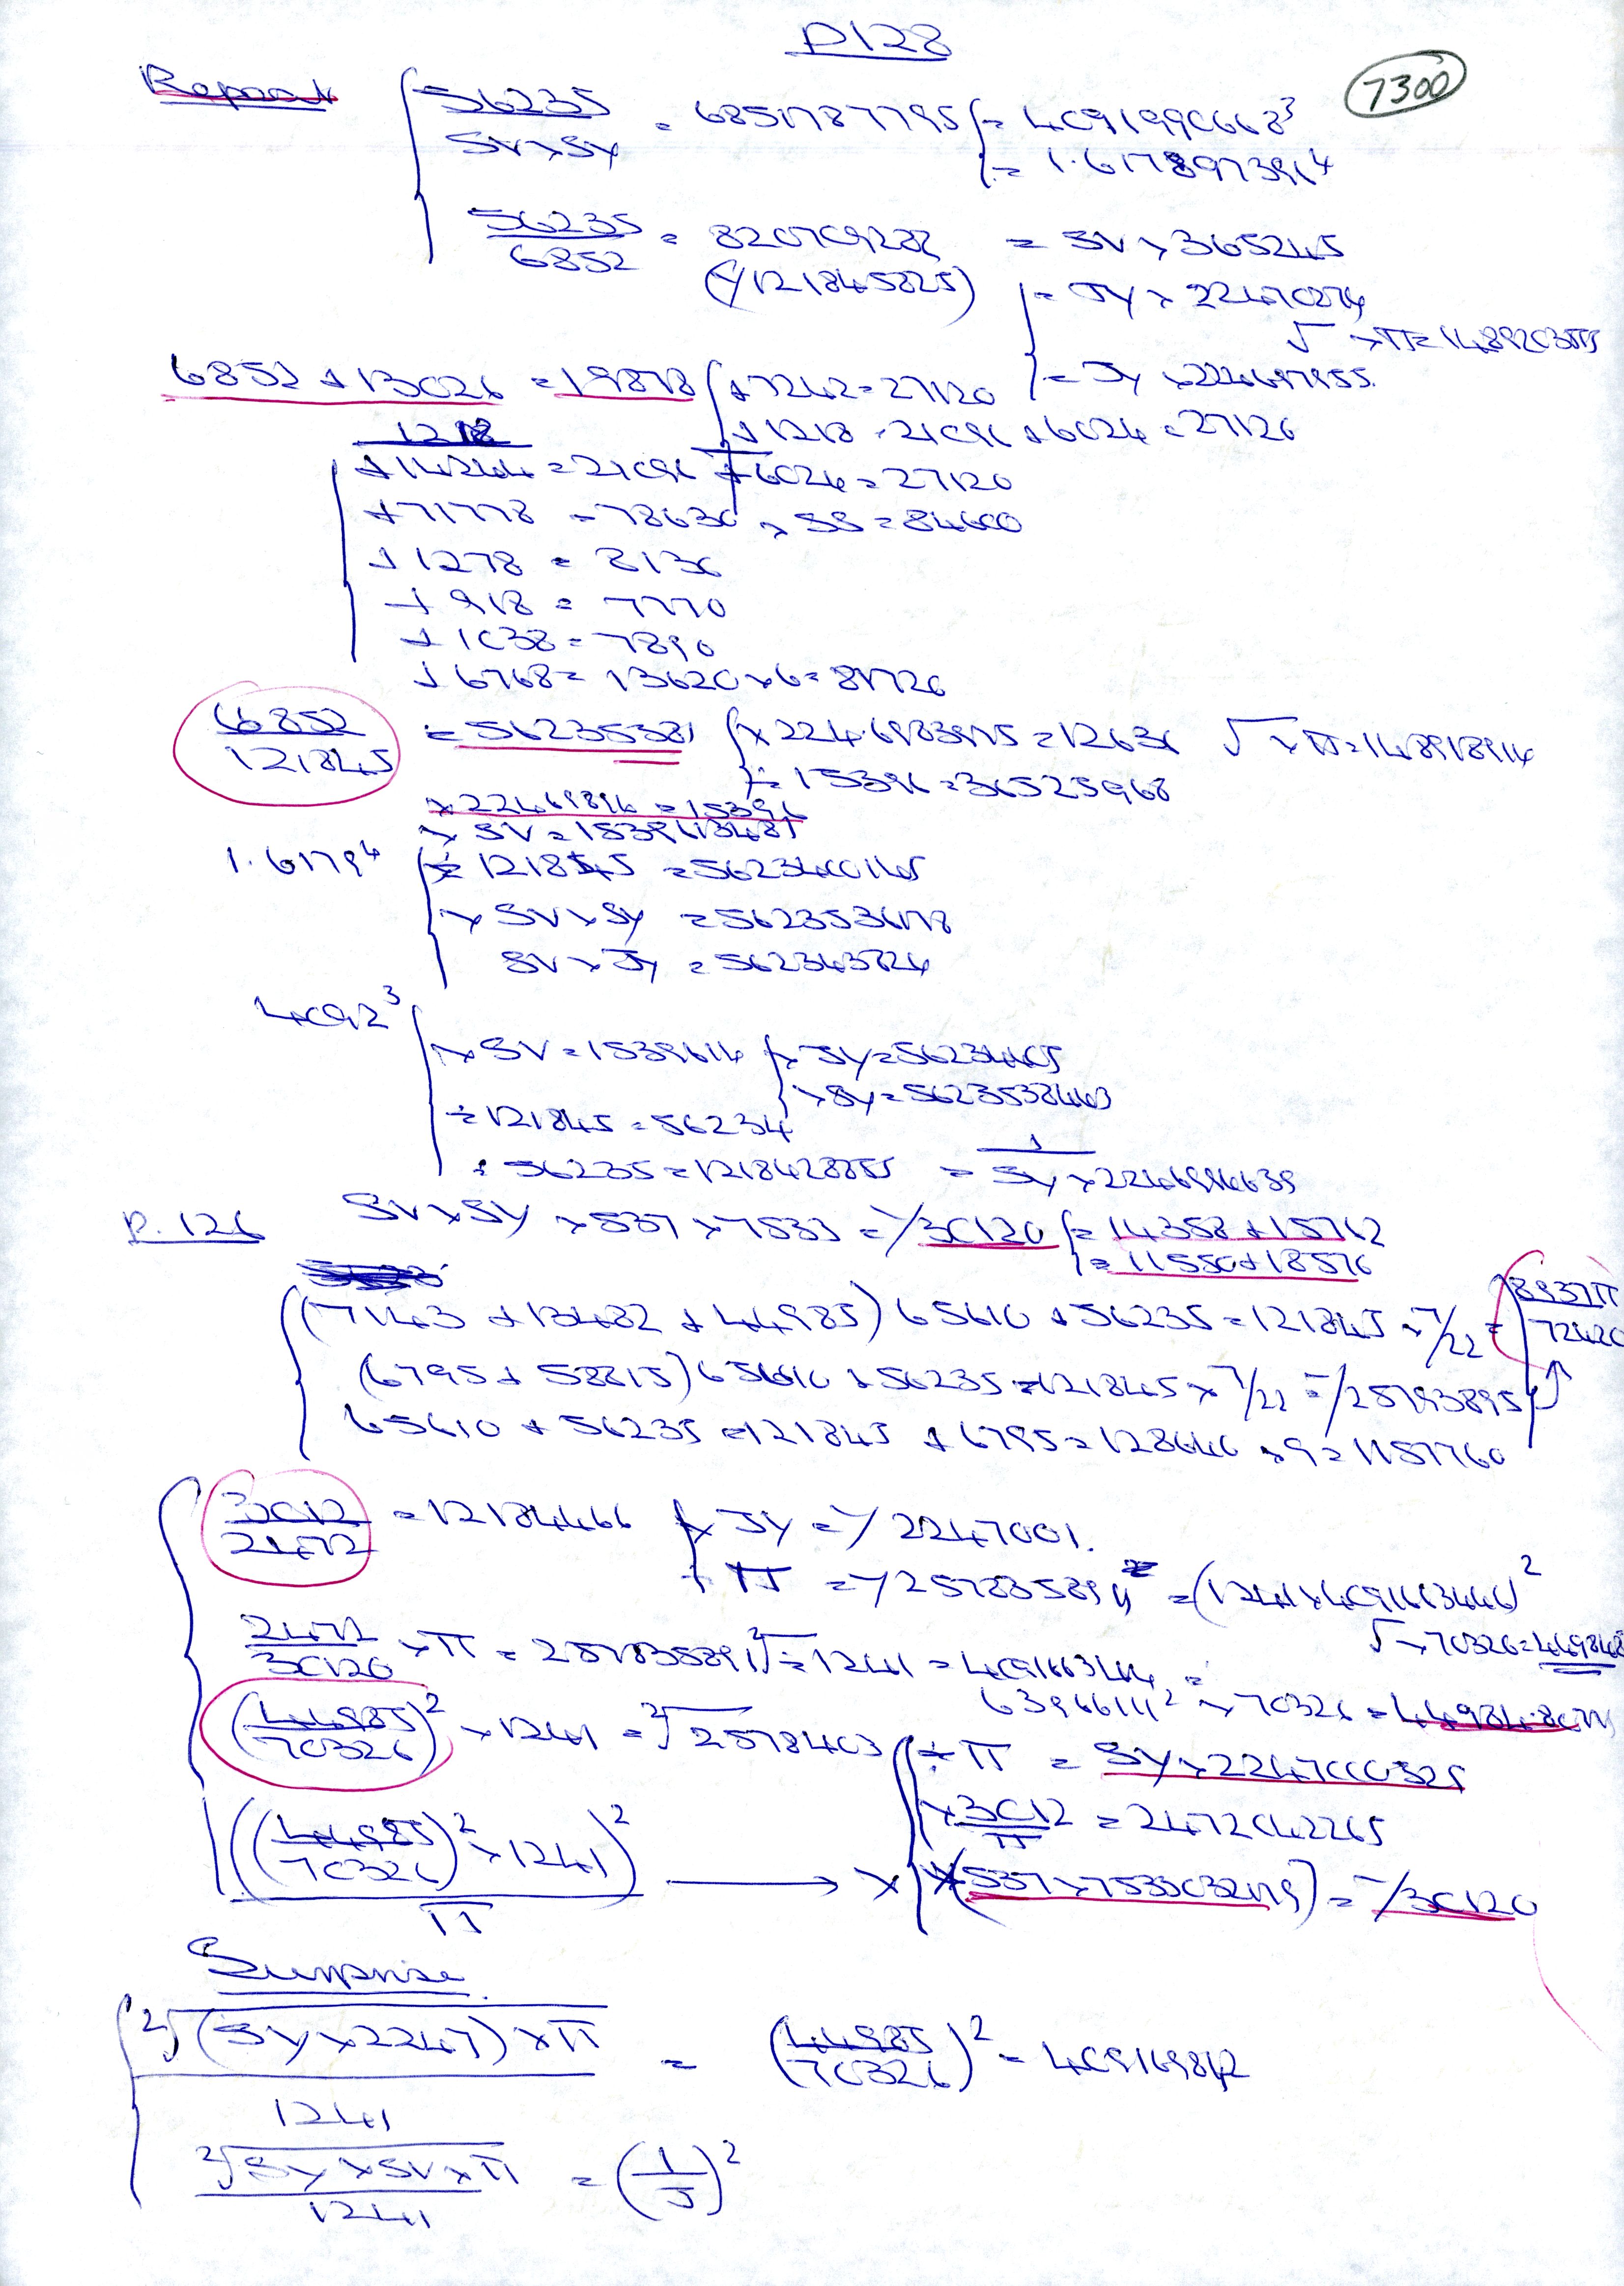 P128
7300
Repeat
56235 / SV×SY = 6851787795 { = 4091990668³
= 1.617897396⁴
56235 / 6852 = 820709282 = SV × 365245
(1/121845825) = JY × 22470274
√ × π = 1489203
= JY × 224697955
6852 + 13026 = 19878 { + 7242 = 27120
+ 1218 = 21096 + 6024 = 27120
+ 14244 = 21096 + 6024 = 27120
+ 71778 = 78630
+ 1278 = 8130
+ 918 = 7770
+ 1038 = 7890
+ 6768 = 13620 × 6 = 81720
6852 / 121845 = 56235381 { × 224.6983975 = 12636 √ × π = 148918914
÷ 15396 = 36525968
× 22469896 = 15396
× SV = 1539613481
1.6179⁴ { ÷ 121845 = 5623400145
× SV × SY = 5623536178
SV × JY = 562343724
4092³ { × SV = 1539614 { × JY = 56234465
× SY = 5623538463
÷ 121845 = 56234
÷ 56235 = 1218428855 = 1 / SY × 2246996639
P. 126 SV × SY × 537 × 7533 = 1/30120 { = 14358 + 15762
= 11550 + 18570
(7143 + 13482 + 44985) 65610 + 56235 = 121845 × 7/22 = 8937π / 72420
(6795 + 58815) 65610 + 56235 = 121845 × 7/22 = 1/25793895
65610 + 56235 = 121845 + 6795 = 128640 × 9 = 1157760
3012 / 2472 = 12184466 { × JY = 1/2247001.
÷ π = 1/257835894 = (1241 × 4091663446)²
2472 / 30120 × π = 257835891 ²√ ÷ 1241 = 4091663414 =
√ × 70326 = 449848
63966111² × 70326 = 44984.8
(44985 / 70326)² × 1241 = ²√2578403 { ÷ π = SY × 2247000325
× 3012 / π = 2472042265
((44985 / 70326)² × 1241)² / π → × (537 × 7533032179) = 1/30120
Surprise
²√(SY × 2247) × π / 1241 = (44985 / 70326)² = 409169842
²√SY × SV × π / 1241 = (1/J)²